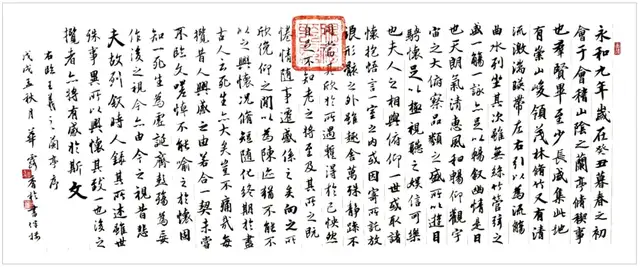 永和九年歲在癸丑暮春之初
會于會稽山陰之蘭亭脩稧事
也羣賢畢至少長咸集此地
有崇山峻領茂林脩竹又有清
流激湍暎帶左右引以為流觴
曲水列坐其次雖無絲竹管弦之
盛一觴一詠亦足以暢叙幽情是日
也天朗氣清惠風和暢仰觀宇
宙之大俯察品類之盛所以遊目
騁懷足以極視聽之娛信可樂
也夫人之相與俯仰一世或取諸
懷抱悟言一室之內或因寄所託放
浪形骸之外雖趣舍萬殊靜躁不
同當其欣於所遇蹔得於己怏然
自足不知老之將至及其所之既
倦情隨事遷感慨係之矣向之所
欣俛仰之閒以為陳迹猶不能不
以之興懷況脩短隨化終期於盡
古人云死生亦大矣豈不痛哉每
攬昔人興感之由若合一契未嘗
不臨文嗟悼不能喻之於懷固
知一死生為虛誕齊彭殤為妄
作後之視今亦由今之視昔悲
夫故列叙時人錄其所述雖世
殊事異所以興懷其致一也後之
攬者亦將有感於斯文
右臨王羲之蘭亭序
戊戌秋月華於書